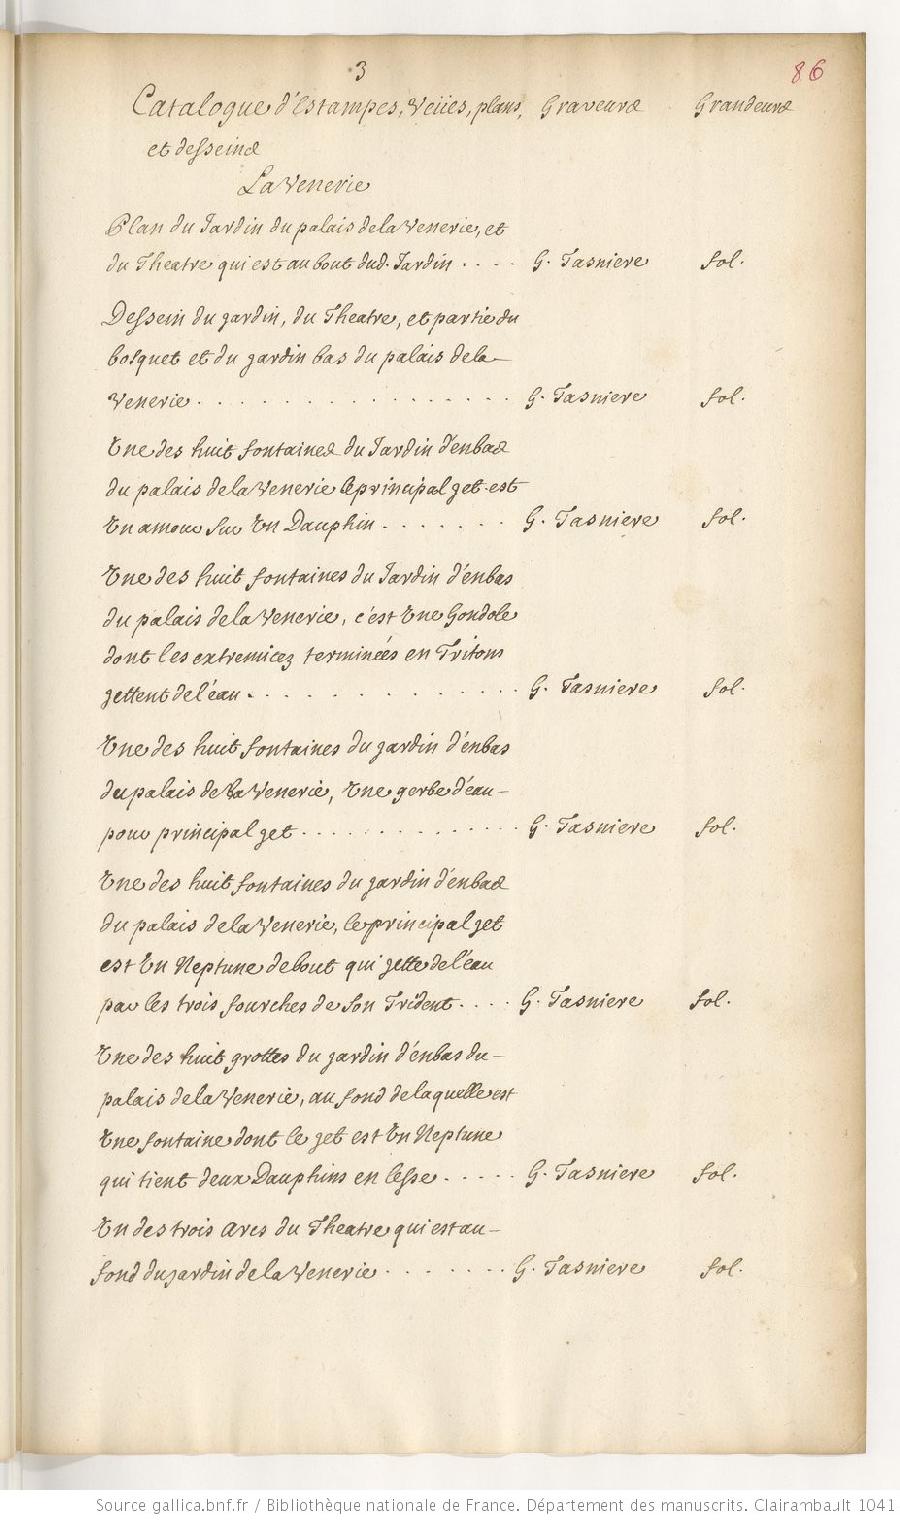 3
86
Catalogue d'Estampes, Veües, plans, Graveurs Grandeurs
et desseins
La Venerie
Plan du Jardin du palais de la Venerie, et
du Theatre qui est au bout dud. Jardin . . . . G. Tasniere fol.
Dessein du gardin, du Theatre, et partie du
bosquet et du gardin bas du palais de la
Venerie . . . . . . . . . . . . . . . . G. Tasniere fol.
Une des huit fontaines du Jardin d'enbas
du palais de la Venerie le principal get est
Un amour sur Un Dauphin . . . . . . . G. Tasniere fol.
Une des huit fontaines du Jardin d'enbas
du palais de la Venerie, c'est Une Gondole
dont les extremicez terminées en Tritons
gettent de l'eau . . . . . . . . . . . . . . G. Tasniere fol.
Une des huit fontaines du gardin d'enbas
du palais de la Venerie, Une gerbe d'eau -
pour principal get . . . . . . . . . . . . . G. Tasniere fol.
Une des huit fontaines du gardin d'enbas
du palais de la Venerie, le principal get
est Un Neptune debout qui gette de l'eau
par les trois fourches de son Trident . . . . G. Tasniere fol.
Une des huit grottes du gardin d'enbas du -
palais de la Venerie, au fond de laquelle est
Une fontaine dont le get est Un Neptune
qui tient deux Dauphins en lesse . . . . . G. Tasniere fol.
Un des trois Arcs du Theatre qui est au -
fond du gardin de la Venerie . . . . . . . G. Tasniere fol.
Source gallica.bnf.fr / Bibliothèque nationale de France. Département des manuscrits. Clairambault 1041